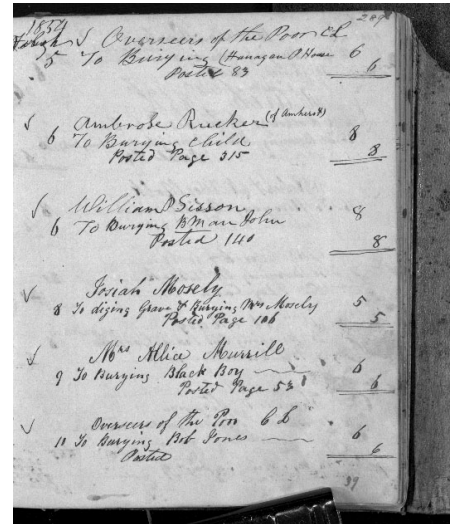 1854
✓ Overseers of the Poor CL
5 To Burying (Hanagan P House 6
Posted 83 6
✓ Ambrose Rucker (of Amherst)
6 To Burying child 8
Posted Page 315 8
✓ William P Sisson 8
6 To Burying B Man John
Posted 140 8
✓ Josiah Mosely
8 To diging Grave & Burying Mrs Mosely 5
Posted Page 106 5
✓ Mrs Allice Murrill
9 To Burying Black Boy 6
Posted Page 53 6
✓ Overseers of the Poor C L
10 To Burying Bob Jones 6
Posted 6
39